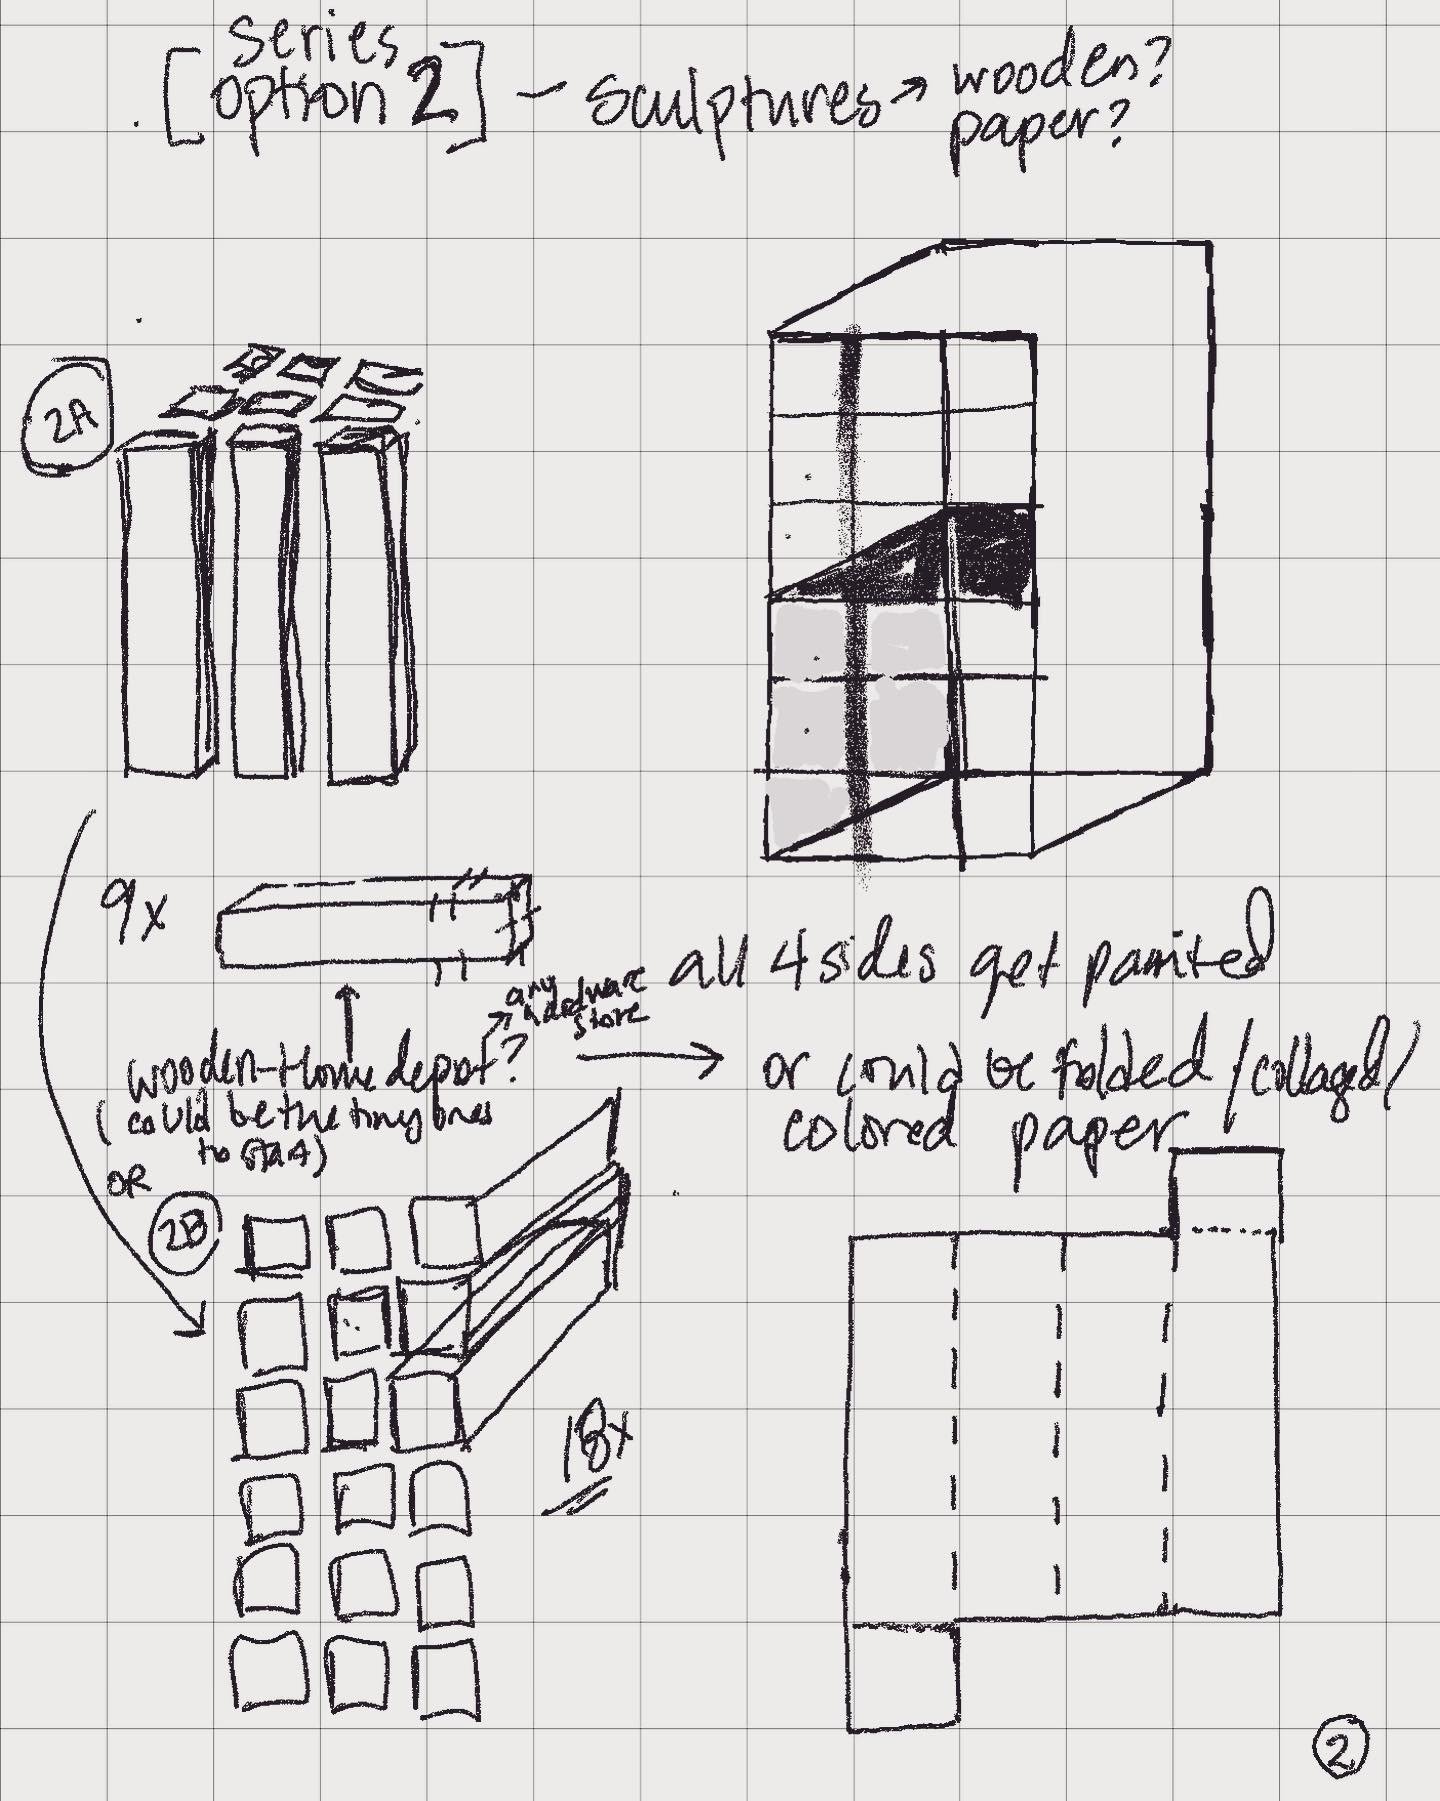 series
[option 2] – sculptures → wooden?
paper?
2A
9x
all 4 sides get painted
any
hardware
store
wooden - Home depot?
(could be the tiny ones
to start)
→ or could be folded / collaged /
colored paper
OR
2B
18x
2